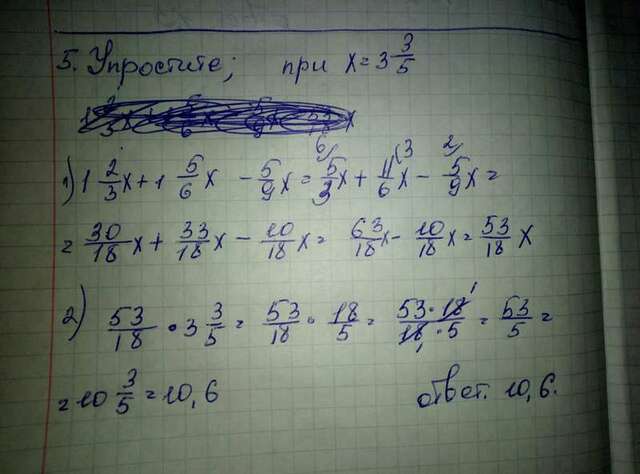 5. Упростите; при x = 3 3/5
1) 1 2/3 x + 1 5/6 x - 5/9 x = 5/3 (6 x + 11/6 (3 x - 5/9 (2 x =
= 30/18 x + 33/18 x - 10/18 x = 63/18 x - 10/18 x = 53/18 x
2) 53/18 • 3 3/5 = 53/18 • 18/5 = 53 • 18/18 • 5 = 53/5 =
= 10 3/5 = 10,6 ответ. 10,6.